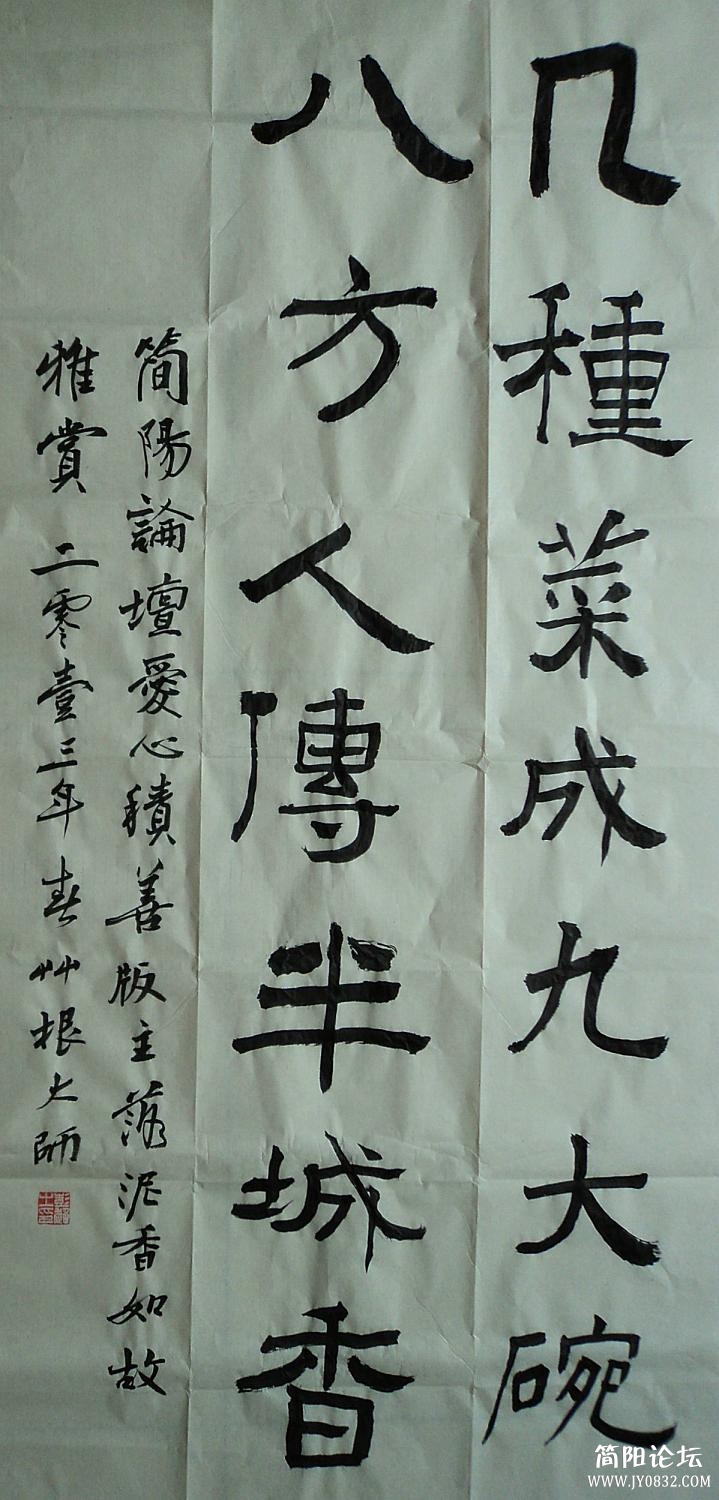 几種菜成九大碗
八方人傳半城香
简陽論壇愛心積善版主落泥香如故
雅賞 二零壹三年春艸根大师
简阳论坛
WWW.JY0832.COM